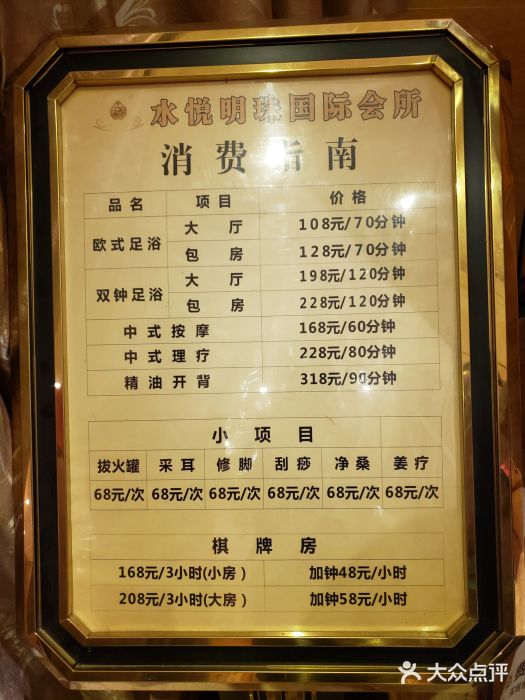 水悦明珠国际会所
消费指南
品名 项目 价格
欧式足浴 大厅 108元/70分钟
包房 128元/70分钟
双钟足浴 大厅 198元/120分钟
包房 228元/120分钟
中式按摩 168元/60分钟
中式理疗 228元/80分钟
精油开背 318元/90分钟
小项目
拔火罐 采耳 修脚 刮痧 净桑 姜疗
68元/次 68元/次 68元/次 68元/次 68元/次 68元/次
棋牌房
168元/3小时(小房) 加钟48元/小时
208元/3小时(大房) 加钟58元/小时
大众点评